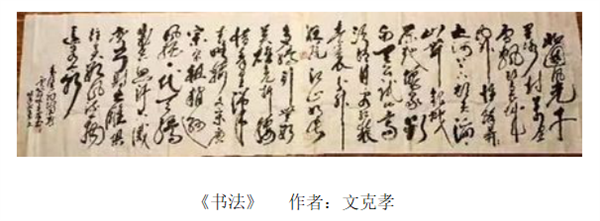 北国风光千
里冰封万里
雪飘望长城内
外惟余莽莽
大河上下顿失滔滔
山舞银蛇
原驰蜡象欲
与天公试比高
须晴日看红装
素裹分外
妖娆江山如此
多娇引无数
英雄竞折腰
惜秦皇汉武
略输文采唐
宗宋祖稍逊
风骚一代天骄
成吉思汗只识
弯弓射大雕俱
往矣数风流人物
还看今朝
《书法》 作者：文克孝